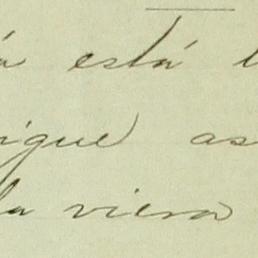 á está
igue as
la viera